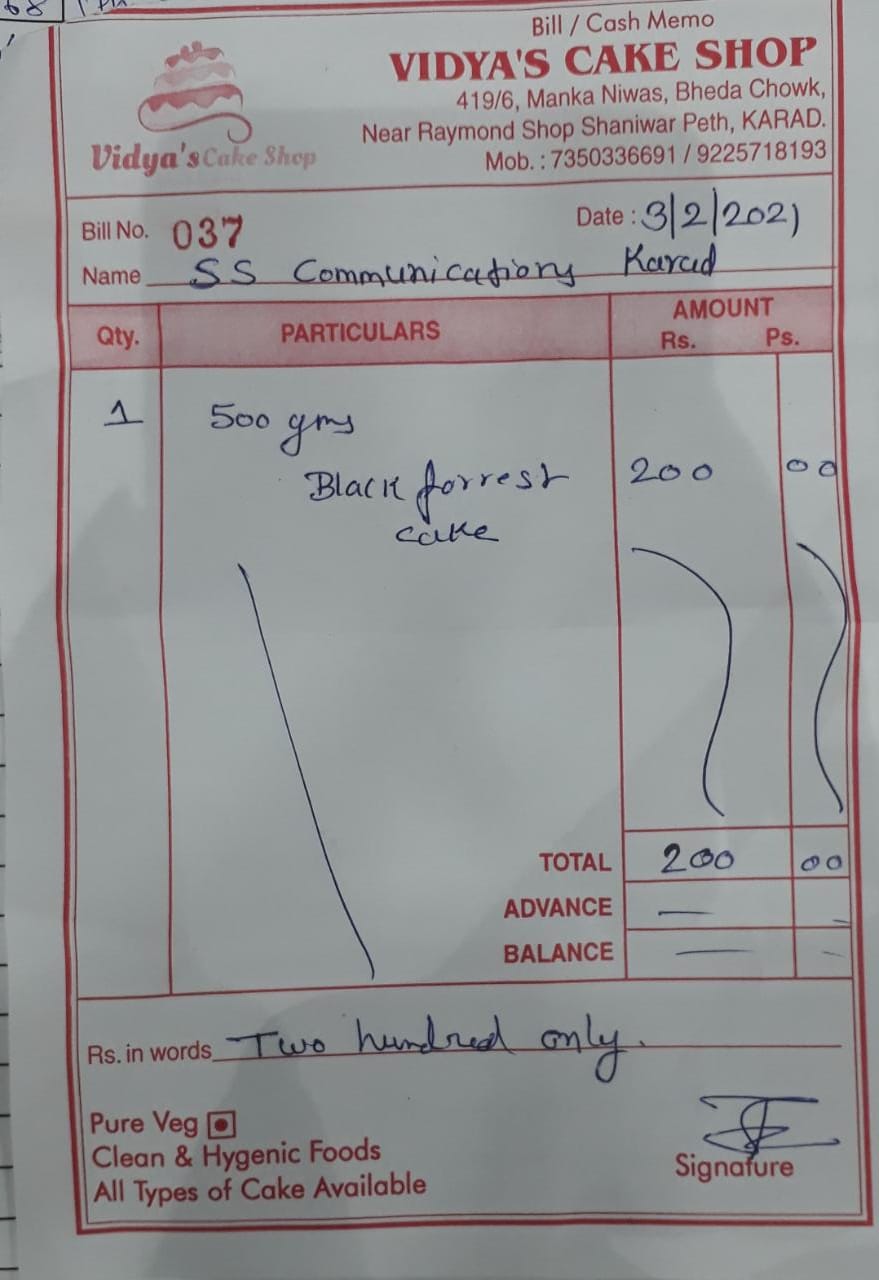 Bill / Cash Memo
VIDYA'S CAKE SHOP
419/6, Manka Niwas, Bheda Chowk,
Near Raymond Shop Shaniwar Peth, KARAD.
Mob. : 7350336691 / 9225718193
Vidya's Cake Shop
Bill No. 037 Date : 3/2/2021
Name SS Communications Karad
Qty. PARTICULARS AMOUNT
Rs. Ps.
1 500 gms
Black forrest 200 00
cake
TOTAL 200 00
ADVANCE —
BALANCE —
Rs. in words Two hundred only.
Pure Veg
Clean & Hygenic Foods
All Types of Cake Available
Signature